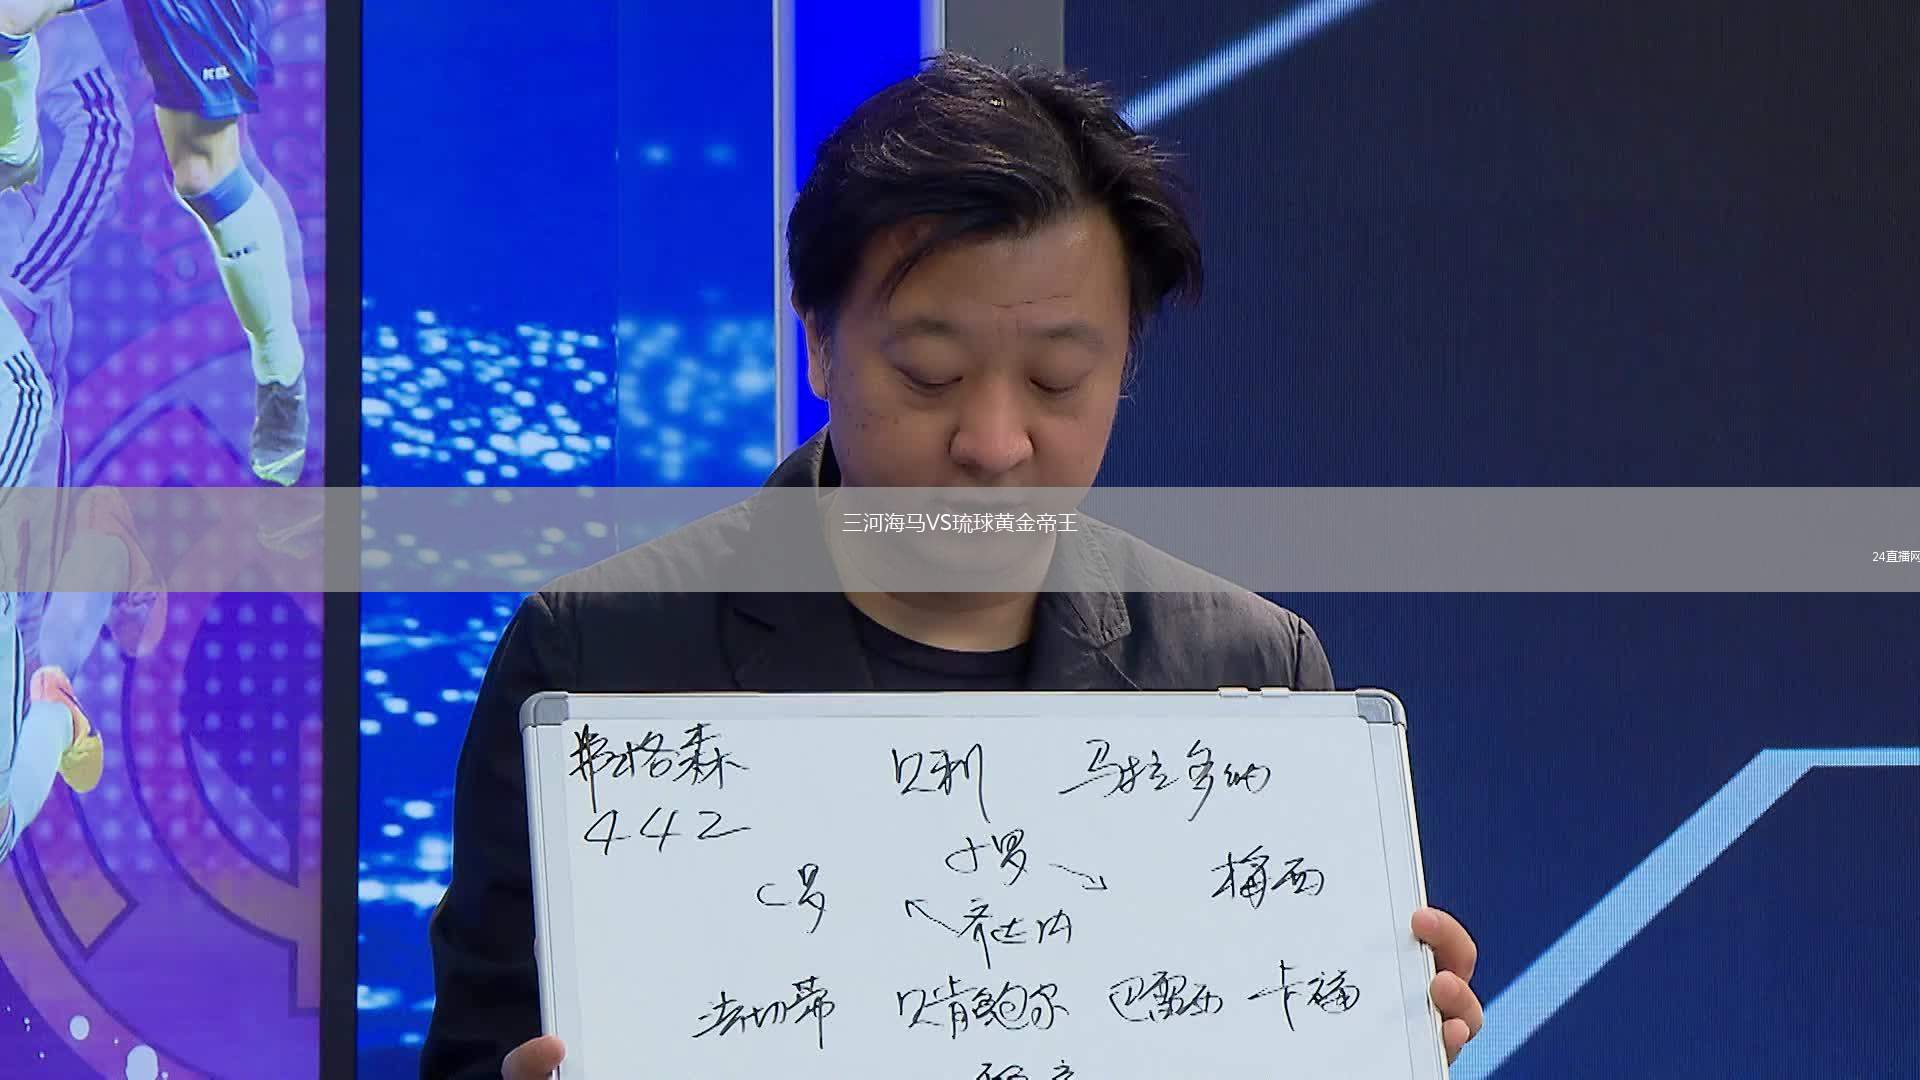 三河海马VS琉球黄金帝王
24直播网
弗格森 贝利 马拉多纳
442
小罗
C罗 梅西
齐达内
法切蒂 贝肯鲍尔 巴雷西 卡福